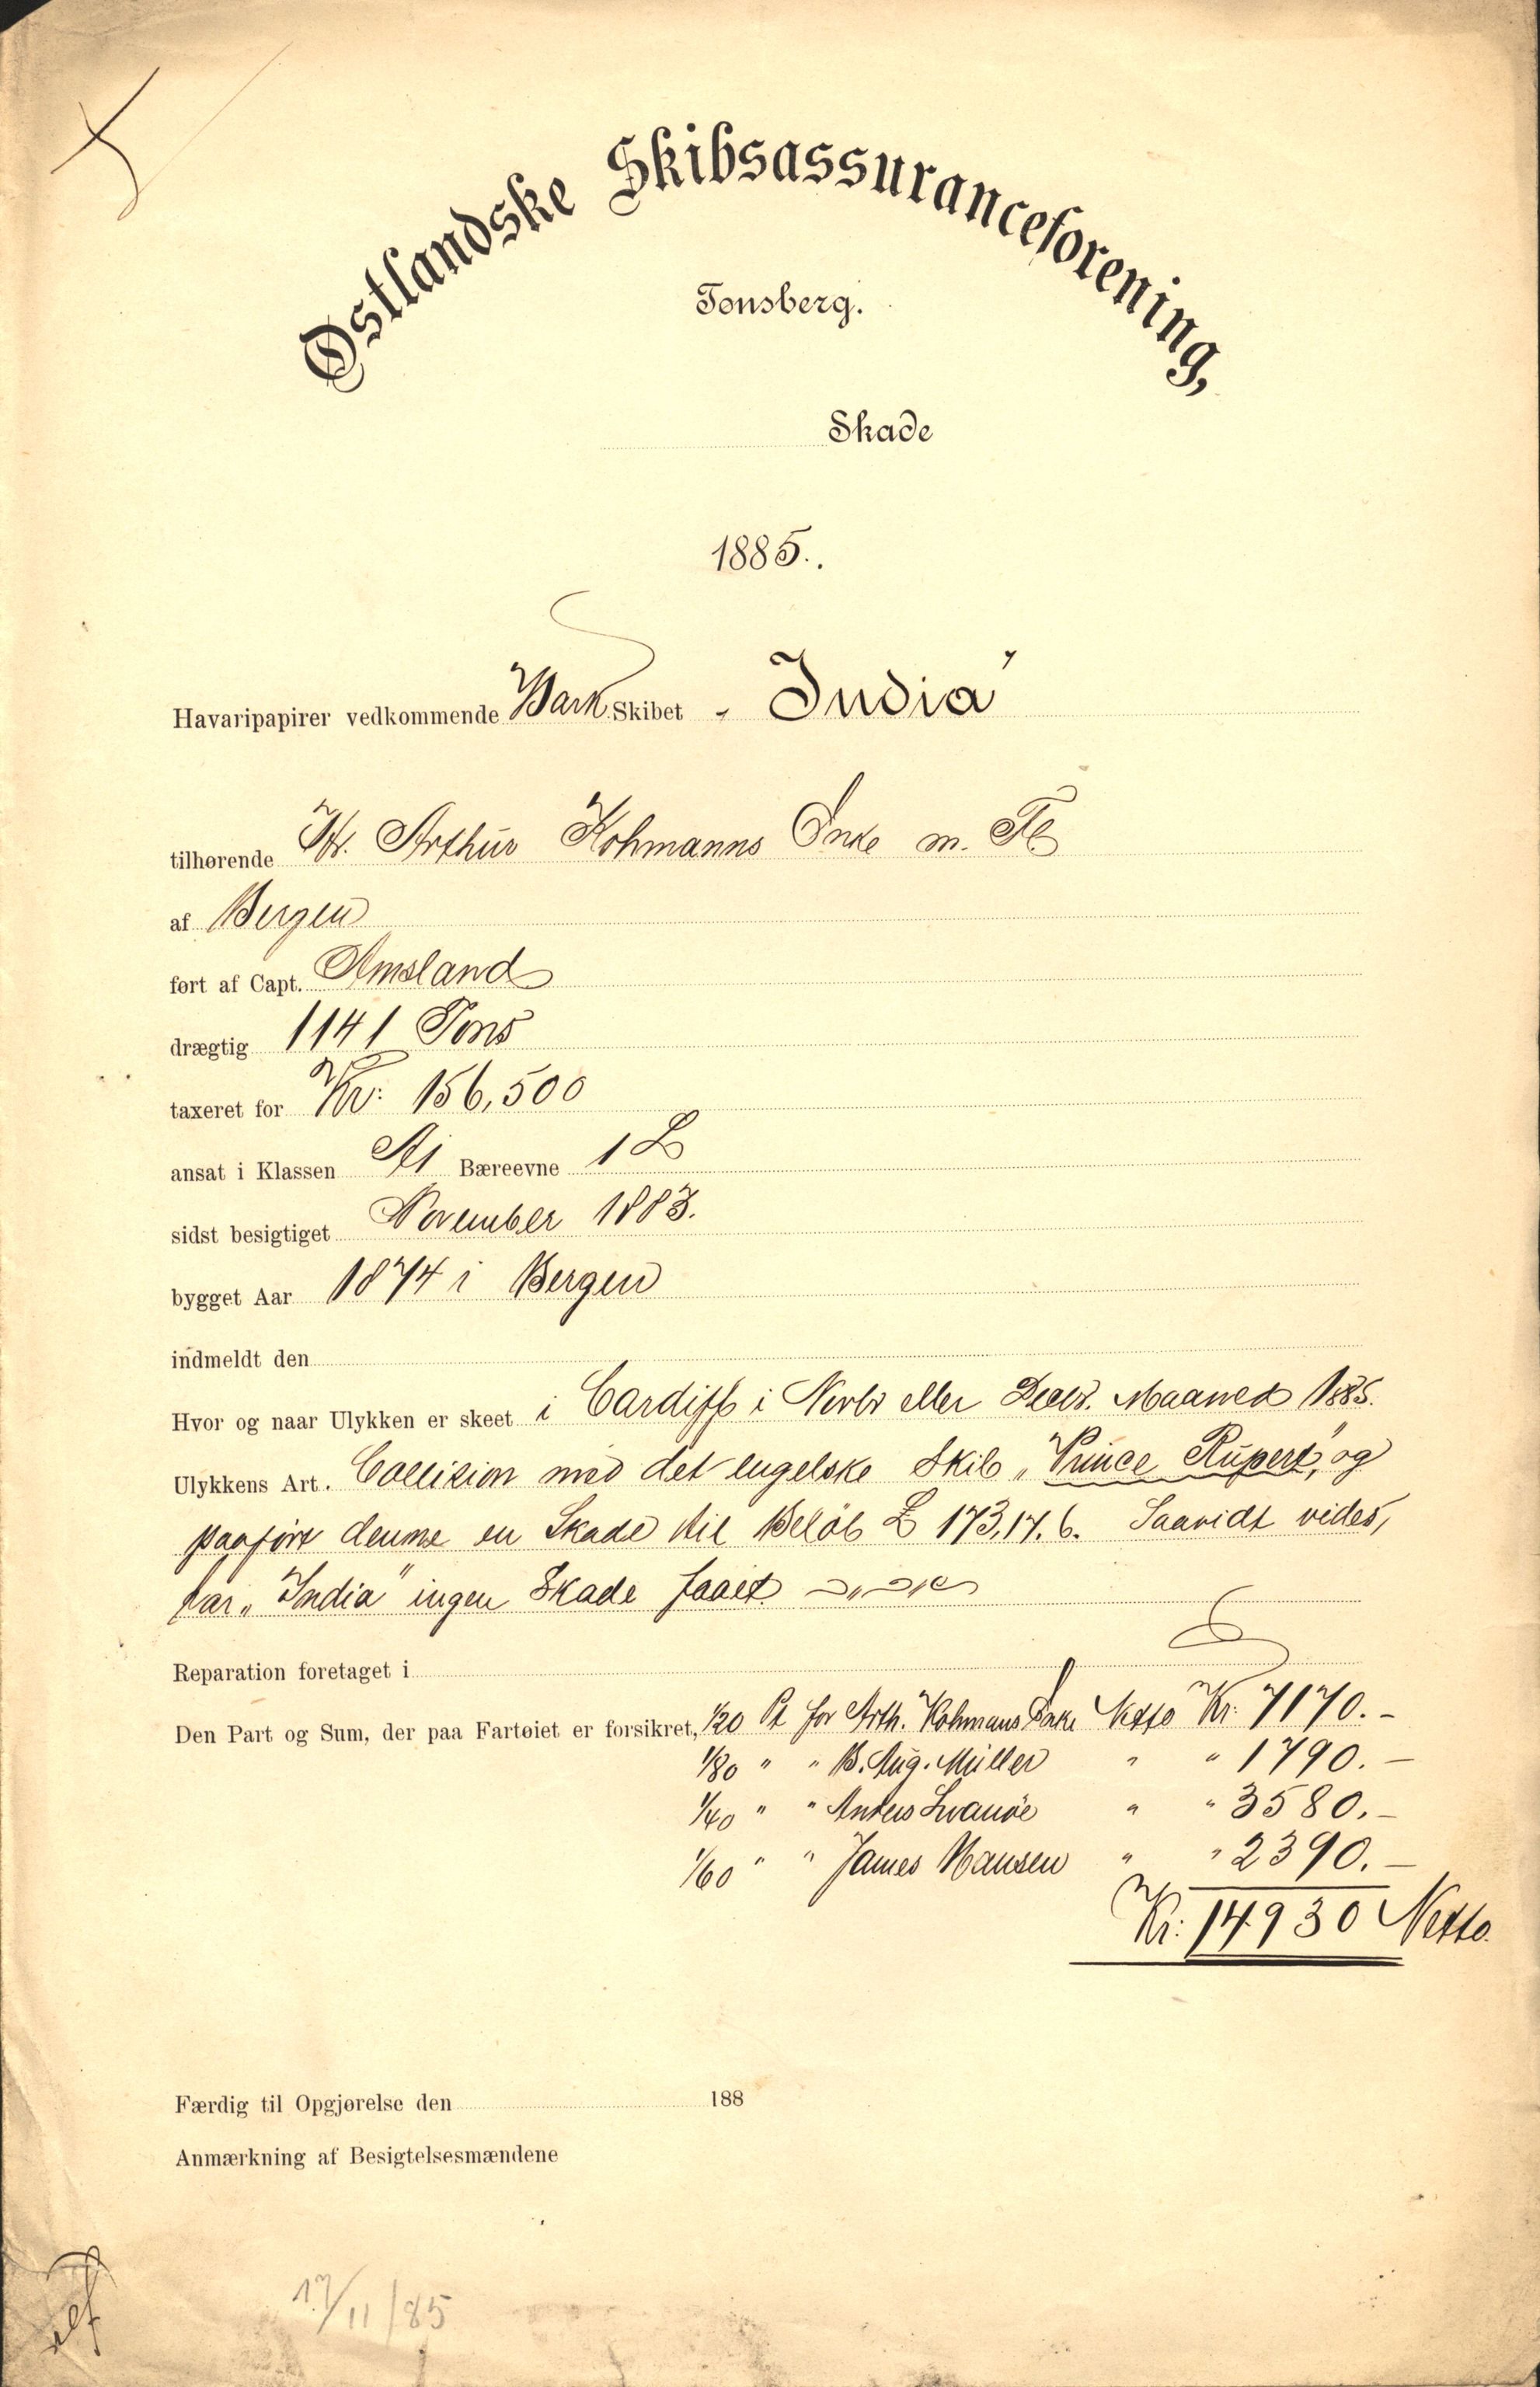 Østlandske Skibsassuranceforening,
Tonsberg.
Skade
1885.
Havaripapirer vedkommende Bark Skibet „India"
tilhørende Hr. Arthur Kohmanns Enke m. Fl
af Bergen
ført af Capt. Amsland
drægtig 1141 Tons
taxeret for Kr: 156,500
ansat i Klassen A1 Bæreevne 1 L
sidst besigtiget November 1883.
bygget Aar 1874 i Bergen
indmeldt den
Hvor og naar Ulykken er skeet i Cardiff i Novbr eller Decbr. Maaned 1885.
Ulykkens Art. Collision med det engelske Skib „Prince Rupert", og
paaført denne en Skade til Beløb £ 173,17.6. Saavidt vides,
har „India" ingen Skade faaet.
Reparation foretaget i
Den Part og Sum, der paa Fartøiet er forsikret, 1/20 Pt for Arth. Kohmans Enke Netto Kr. 7170.-
1/80 " " B. Aug. Müller " " 1790.-
1/40 " " Anders Svanöe " " 3580.-
1/60 " " James Hansen " " 2390.-
Kr: 14930 Netto.
Færdig til Opgjørelse den 188
Anmærkning af Besigtelsesmændene
17/11/85